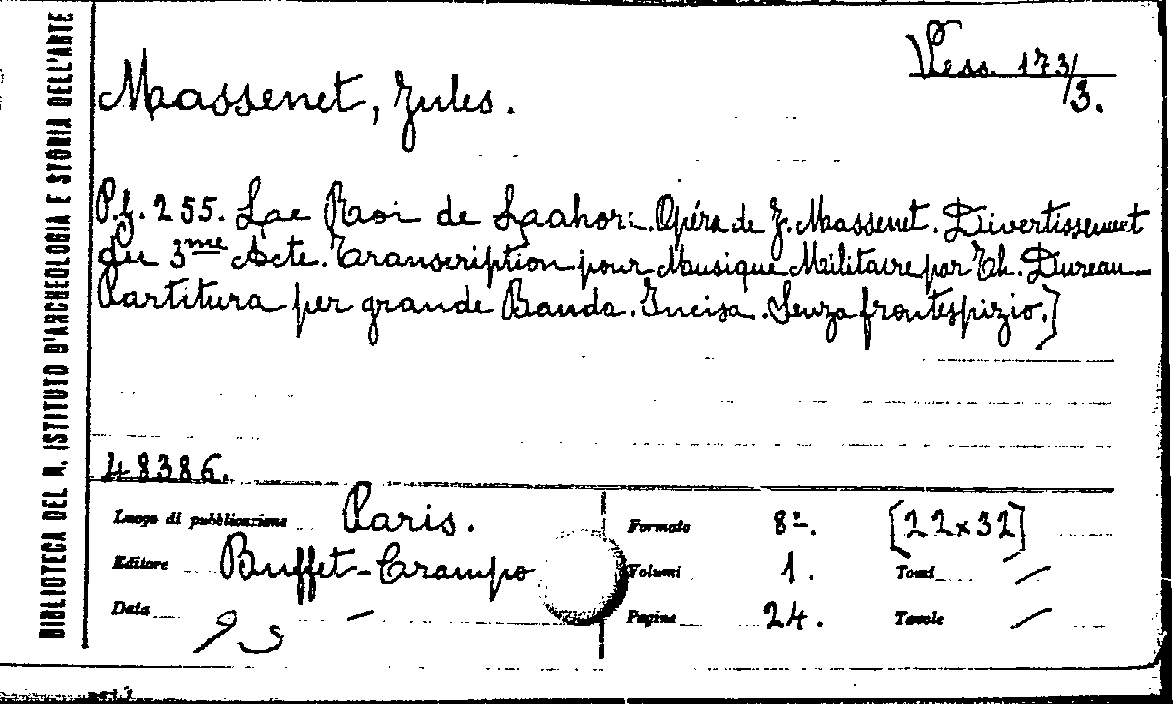 BIBLIOTECA DEL R. ISTITUTO D'ARCHEOLOGIA E STORIA DELL'ARTE
Vess. 173/3.
Massenet, Jules.
P.f. 255. Le Roi de Lahor: Opéra de J. Massenet. Divertissement
du 3me Acte. Transcription pour Musique Militaire par Th. Dureau
Partitura per grande Banda. Incisa. Senza frontespizio.]
48386.
Luogo di pubblicazione Paris.
Editore Buffet-Crampo
Data —
Formato 8º. [22x32]
Volumi 1. Tomi /
Pagine 24. Tavole /